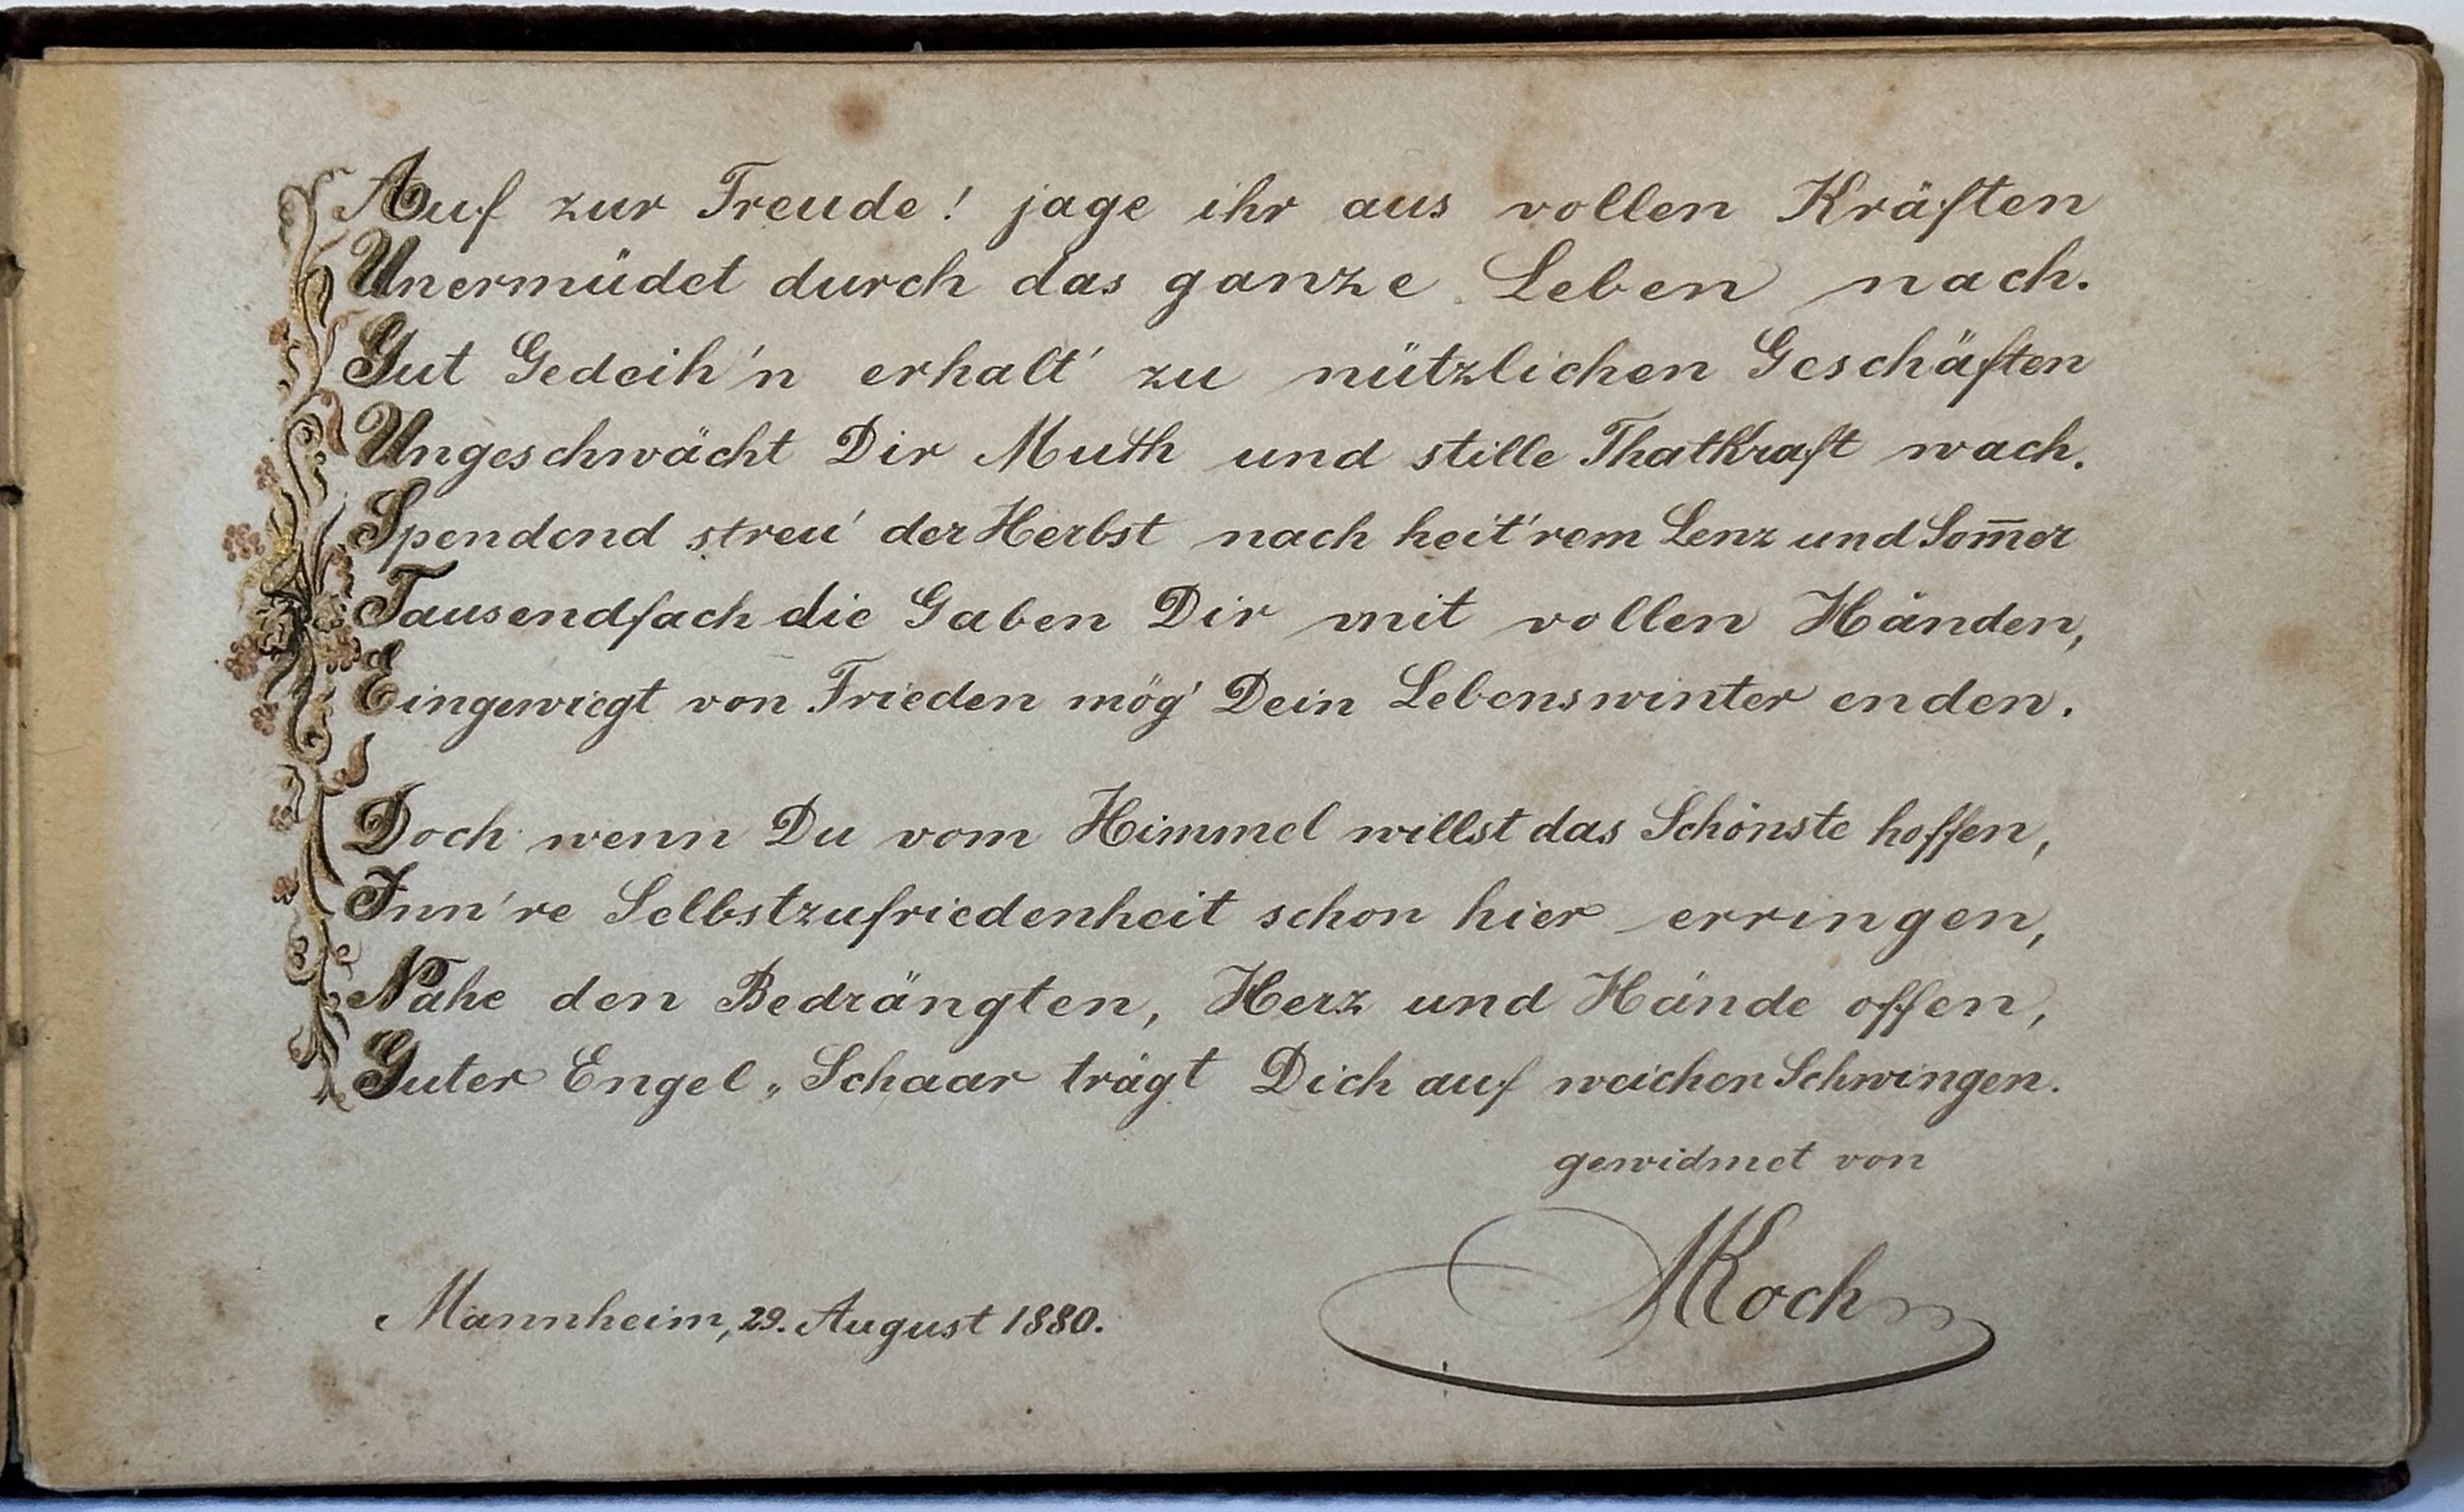 Auf zur Freude! jage ihr aus vollen Kräften
Unermüdet durch das ganze Leben nach.
Gut Gedeih'n erhalt' zu nützlichen Geschäften
Ungeschwächt Dir Muth und stille Thatkraft wach.
Spendend streu' der Herbst nach heit'rem Lenz und Som̅er
Tausendfach die Gaben Dir mit vollen Händen,
Eingewiegt von Frieden mög' Dein Lebenswinter enden.
Doch wenn Du vom Himmel willst das Schönste hoffen,
Inn're Selbstzufriedenheit schon hier erringen,
Nahe den Bedrängten, Herz und Hände offen,
Guter Engel „ Schaar trägt Dich auf weichen Schwingen.
gewidmet von
MKoch
Mannheim, 29. August 1880.